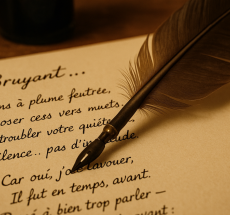 Bruyant...
ns à plume feutrée,
oser cess vers muets.
troubler votre quiét
lence.. pas d'in ude
Car oui, j'o avouer,
Il fut en temps, avant.
à bien trop parler –